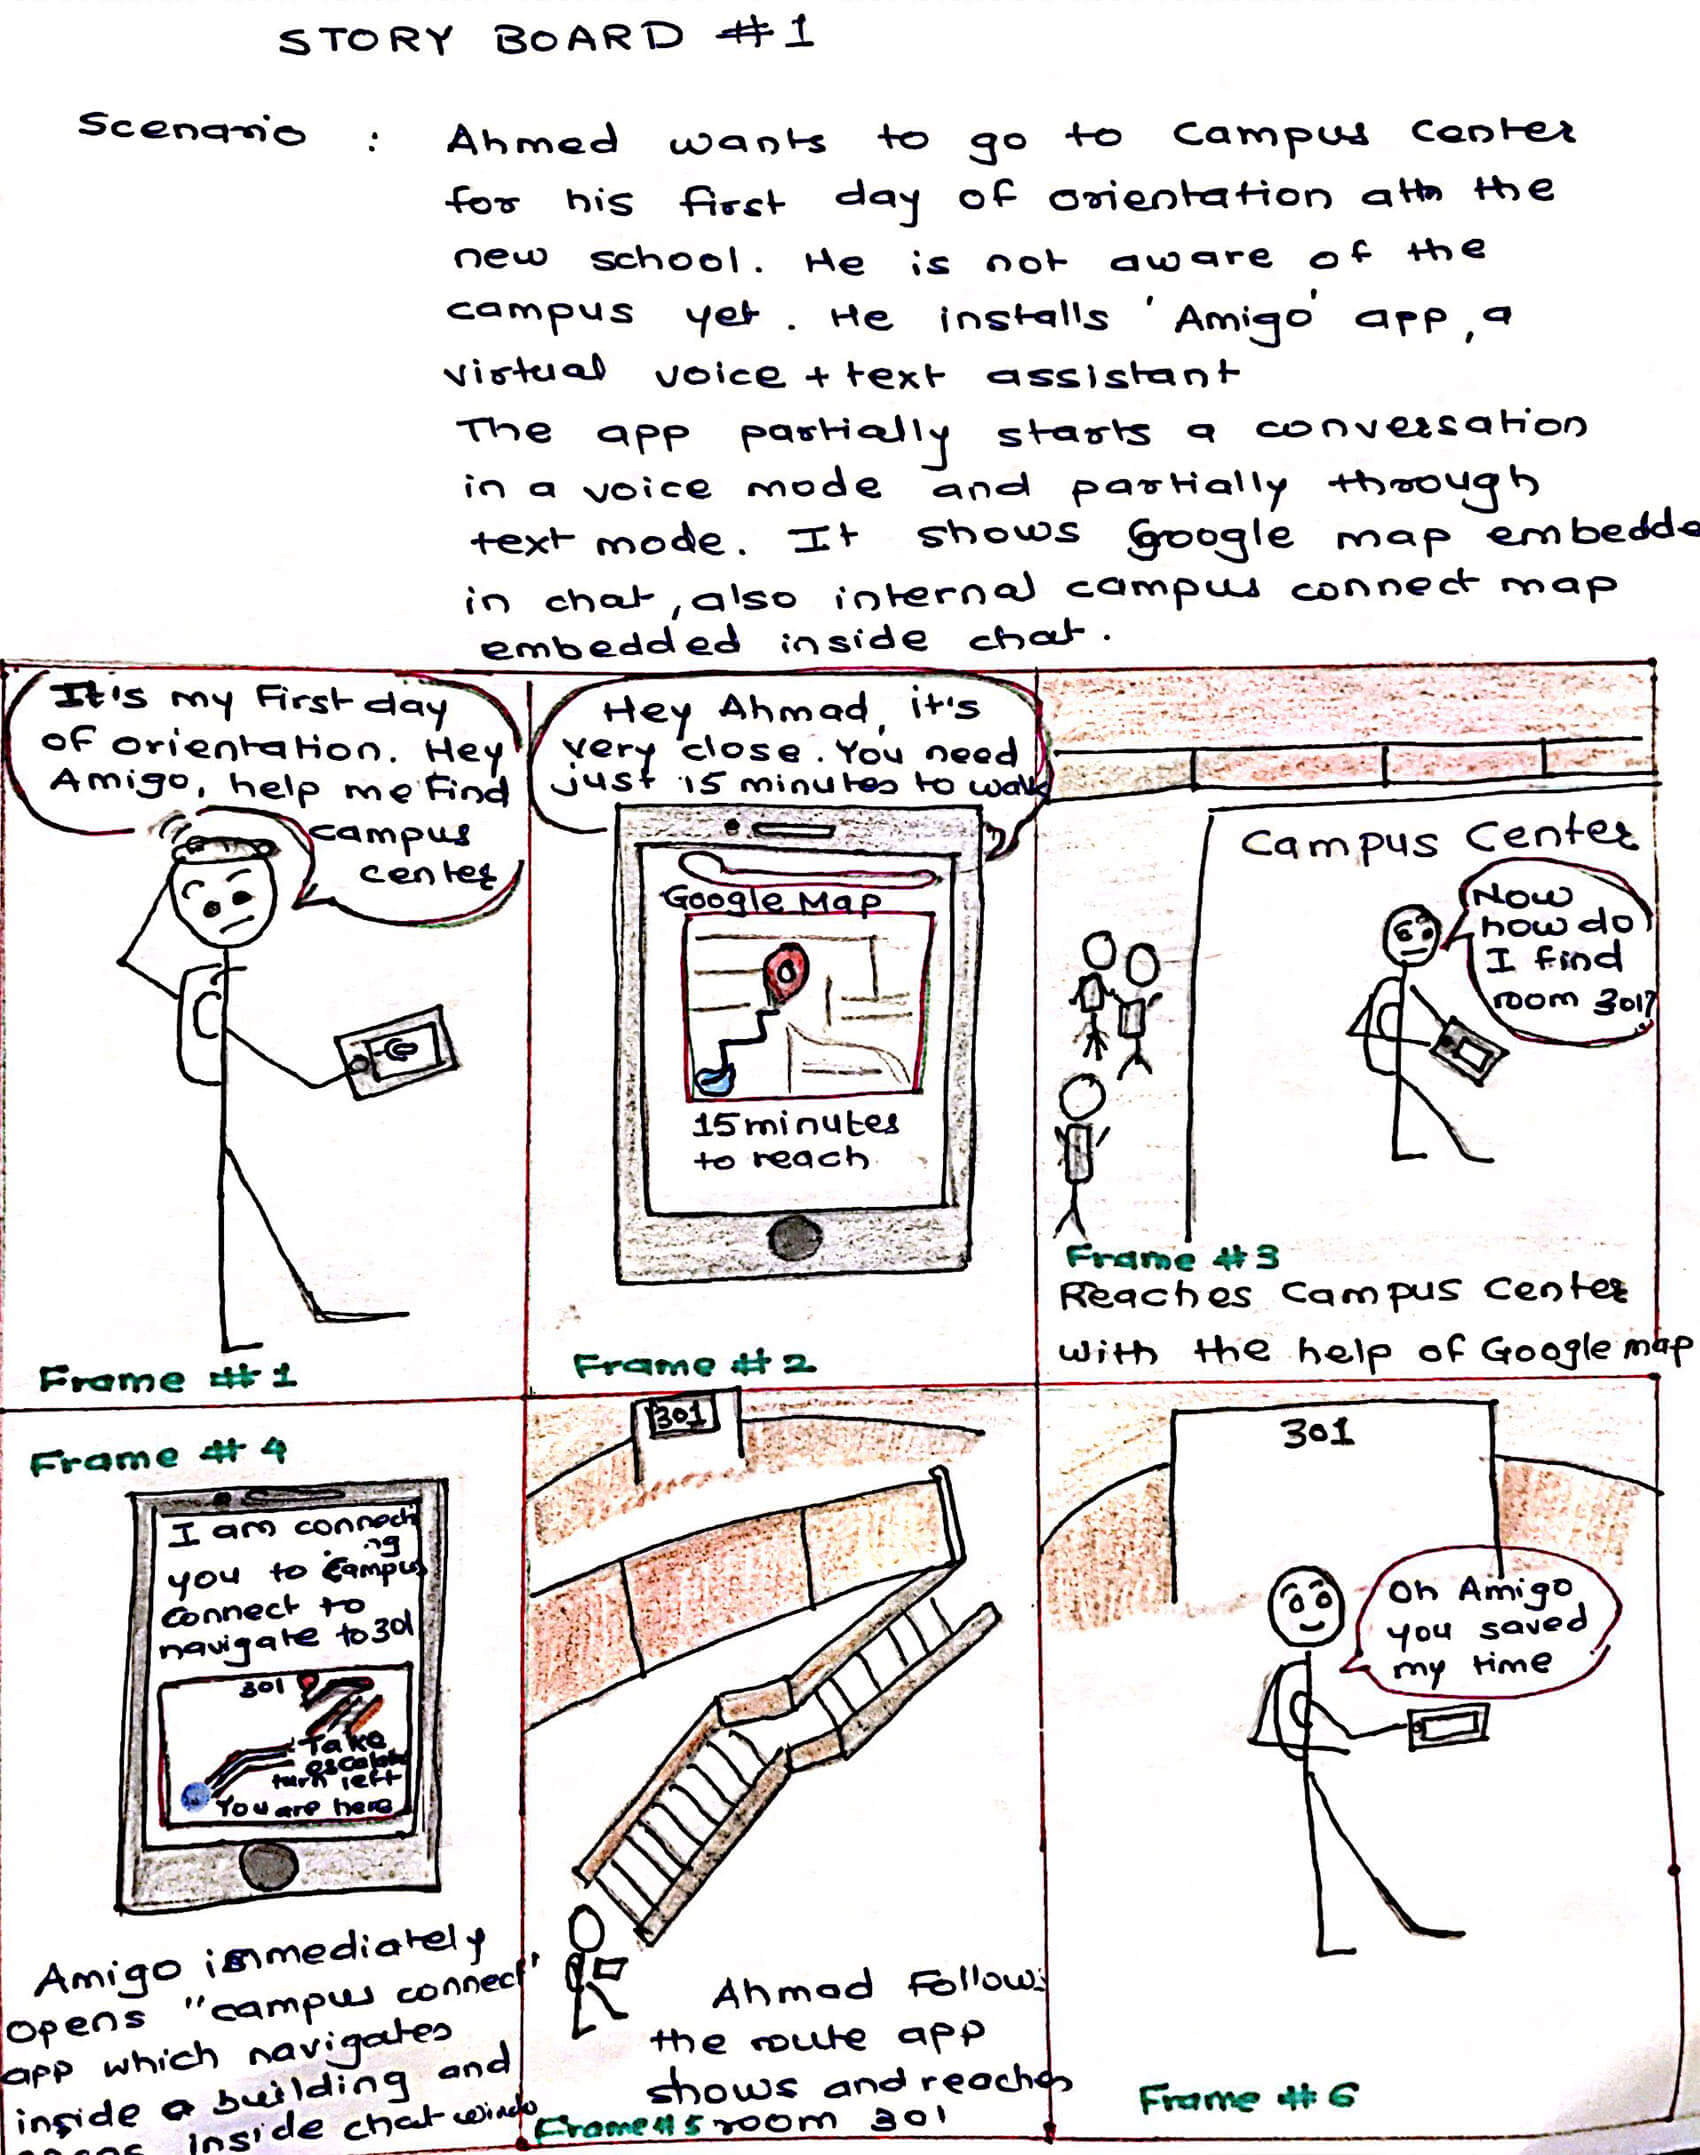 STORY BOARD #1
Scenario : Ahmed wants to go to campus center
for his first day of orientation at the
new school. He is not aware of the
campus yet. He installs 'Amigo' app, a
virtual voice + text assistant
The app partially starts a conversation
in a voice mode and partially through
text mode. It shows Google map embedde
in chat, also internal campus connect map
embedded inside chat.
It's my First day
of orientation. Hey
Amigo, help me find
campus
center
Frame #1
Hey Ahmad, it's
very close. You need
just 15 minutes to walk
Google Map
15 minutes
to reach
Frame #2
Campus Center
Now
how do
I find
room 301?
Frame #3
Reaches Campus Center
with the help of Google map
Frame #4
I am connecti
ng
you to campus
connect to
navigate to 301
301
Take
escalator
turn left
You are here
Amigo immediately
opens "campus connect"
app which navigates
inside a building and
inside chat windo
301
Ahmad Follows
the route app
shows and reaches
Frame #5 room 301
301
Oh Amigo
you saved
my time
Frame #6